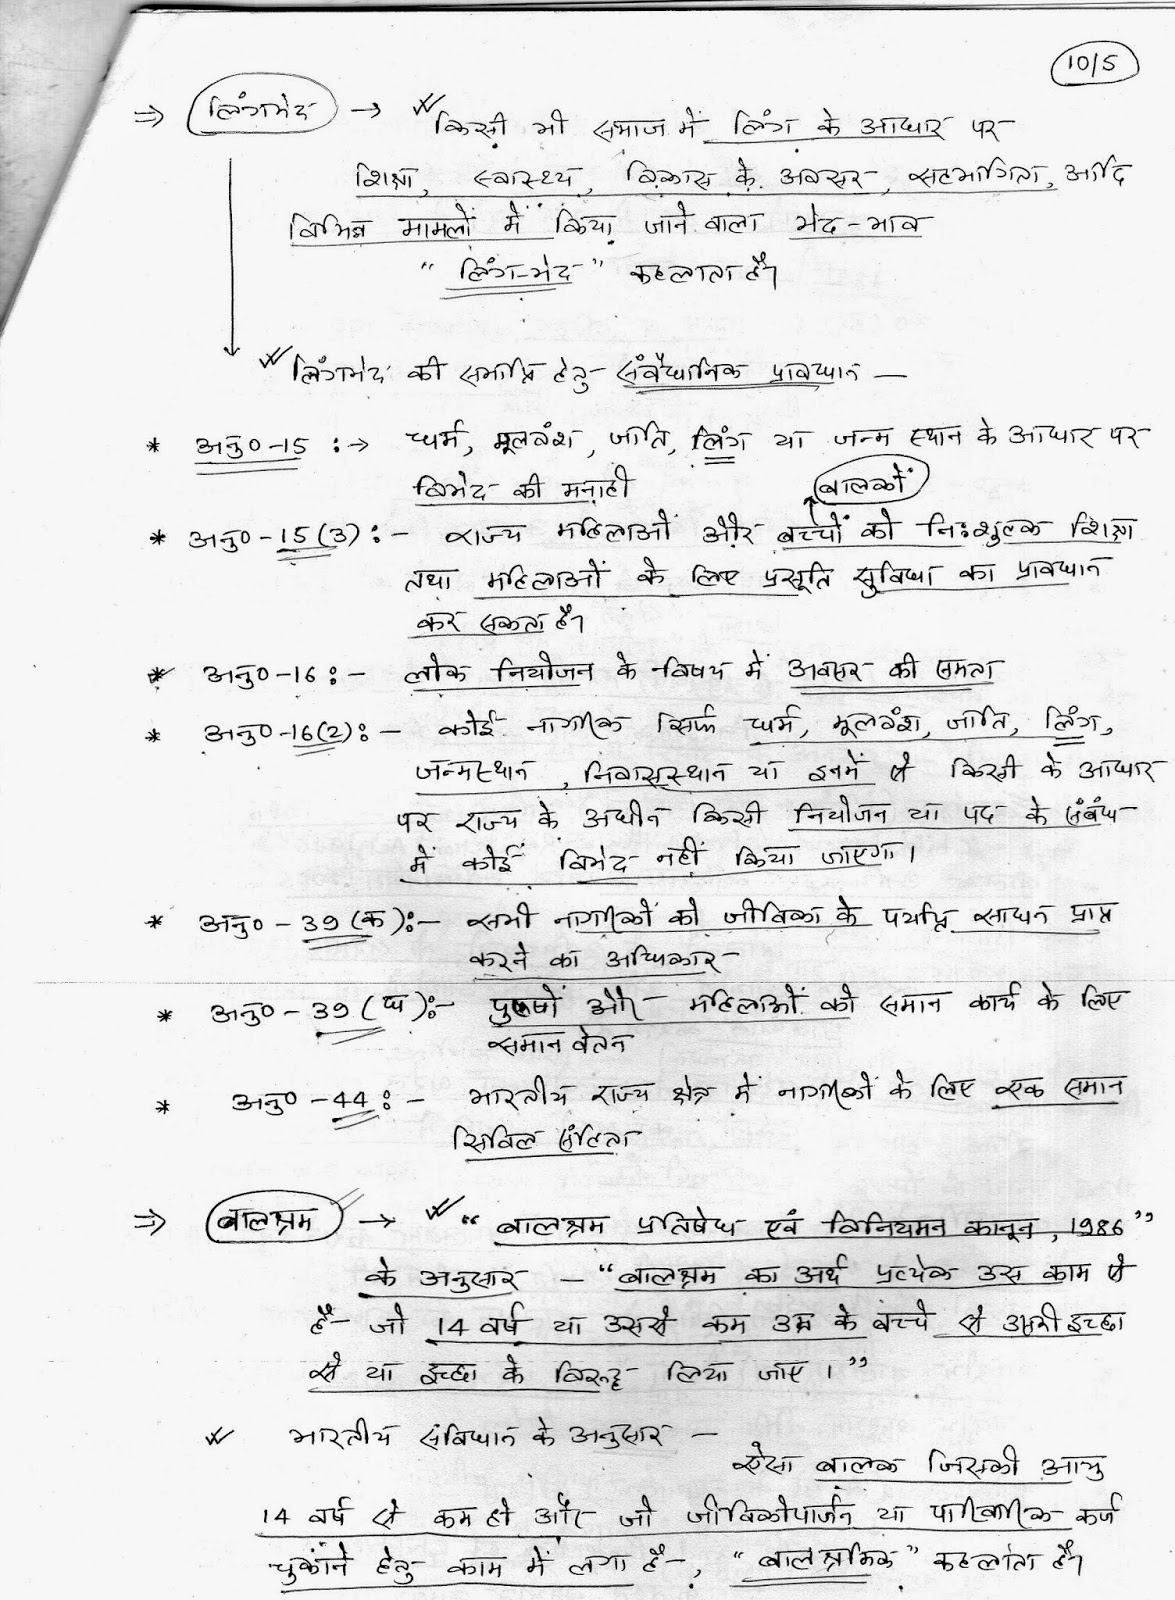 10/5
⇒ लिंगभेद → किसी भी समाज में लिंग के आधार पर
शिक्षा, स्वास्थ्य, विकास के अवसर, सहभागिता, आदि
विभिन्न मामलों में किया जाने वाला भेद-भाव
"लिंग-भेद" कहलाता है।
लिंगभेद की समाप्ति हेतु संवैधानिक प्रावधान —
* अनु०-15 :→ धर्म, मूलवंश, जाति, लिंग या जन्म स्थान के आधार पर
विभेद की मनाही
बालकों
* अनु०-15(3):- राज्य महिलाओं और बच्चों को निःशुल्क शिक्षा
तथा महिलाओं के लिए प्रसूति सुविधा का प्रावधान
कर सकता है।
* अनु०-16:- लोक नियोजन के विषय में अवसर की समता
* अनु०-16(2):- कोई नागरिक सिर्फ धर्म, मूलवंश, जाति, लिंग,
जन्मस्थान, निवासस्थान या इनमें से किसी के आधार
पर राज्य के अधीन किसी नियोजन या पद के संबंध
में कोई विभेद नहीं किया जाएगा।
* अनु०-39(क):- सभी नागरिकों को जीविका के पर्याप्त साधन प्राप्त
करने का अधिकार
* अनु०-39(घ):- पुरुषों और महिलाओं को समान कार्य के लिए
समान वेतन
* अनु०-44:- भारतीय राज्य क्षेत्र में नागरिकों के लिए एक समान
सिविल संहिता
⇒ बालश्रम → "बालश्रम प्रतिषेध एवं विनियमन कानून, 1986"
के अनुसार — "बालश्रम का अर्थ प्रत्येक उस काम से
है जो 14 वर्ष या उससे कम उम्र के बच्चे से उसकी इच्छा
से या इच्छा के विरुद्ध लिया जाए।"
भारतीय संविधान के अनुसार —
ऐसा बालक जिसकी आयु
14 वर्ष से कम हो और जो जीविकोपार्जन या पारिवारिक कर्ज
चुकाने हेतु काम में लगा है, "बालश्रमिक" कहलाता है।